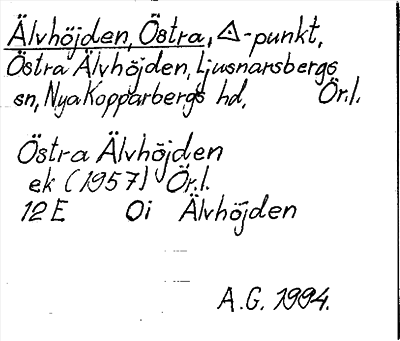 Älvhöjden, Östra, △-punkt,
Östra Älvhöjden, Ljusnarsbergs
sn, Nya Kopparbergs hd, Ör.l.
Östra Älvhöjden
ek (1957) Ör.l.
12 E 0i Älvhöjden
A.G. 1994.